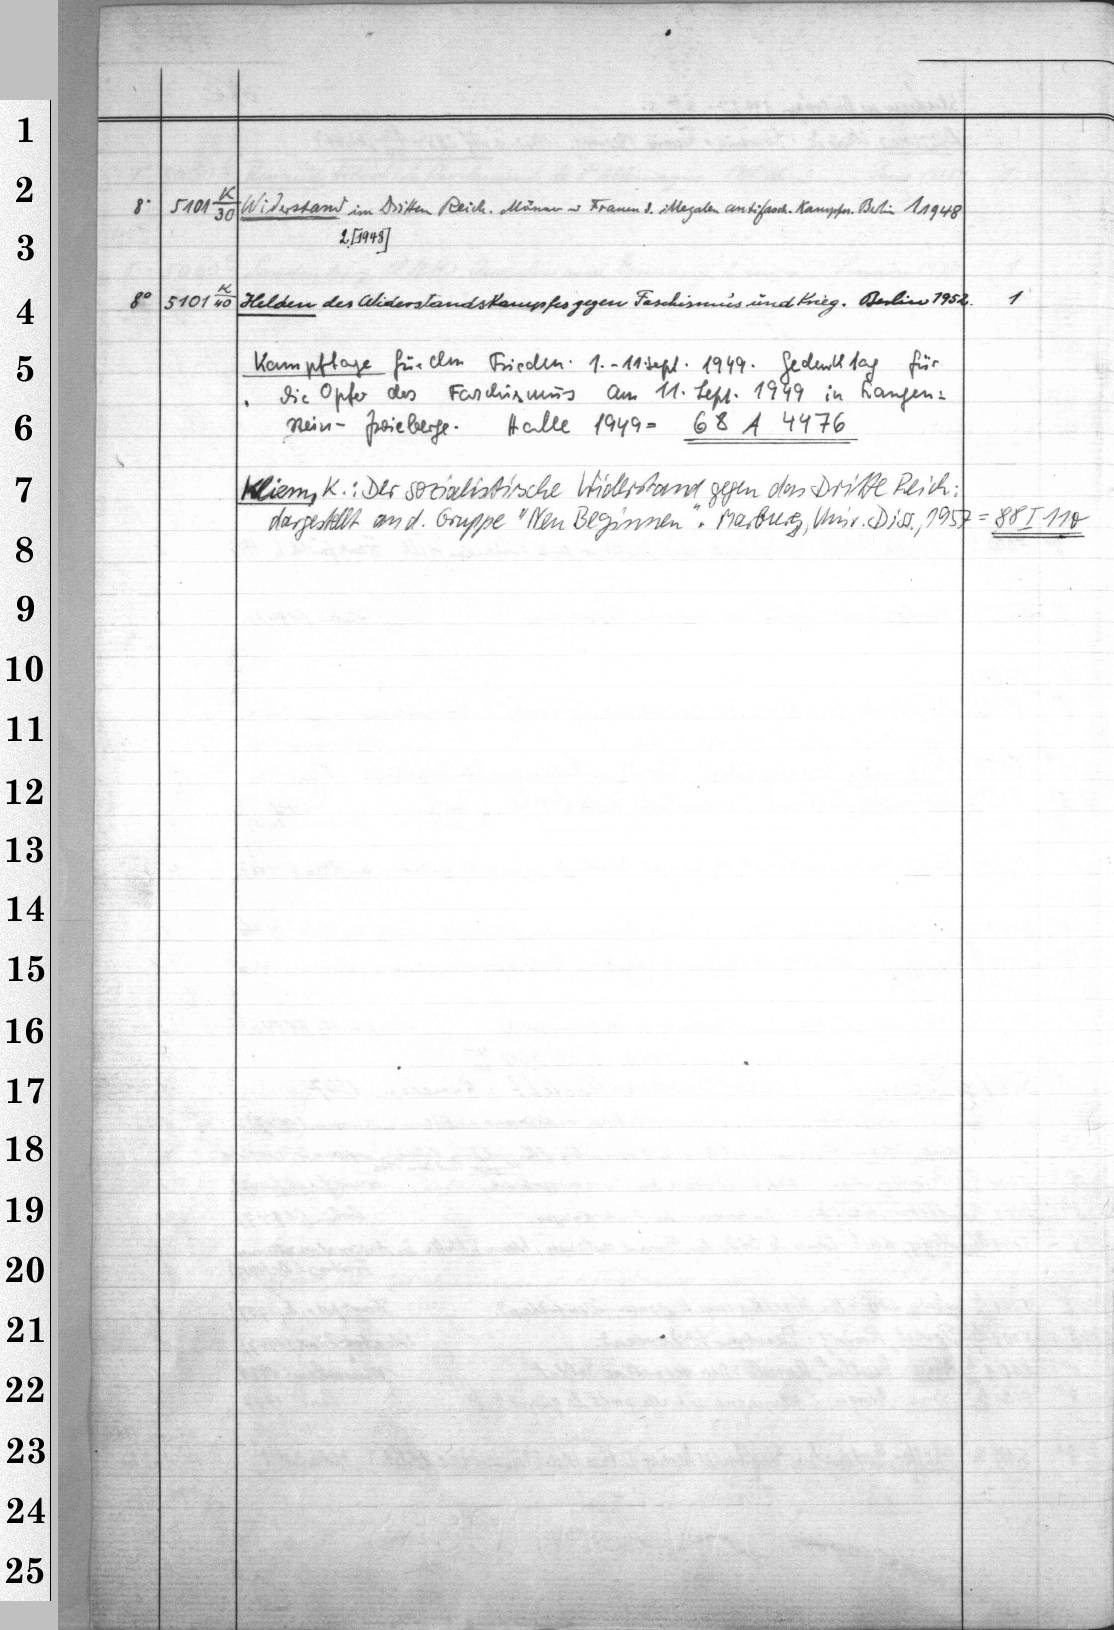 1
2
8° 5101 K/30 Widerstand im Dritten Reich. Männer u Frauen d. illegalen antifasch. Kampfes. Berlin 1 1948
3
2.[1948]
8° 5101 K/40 Helden des Widerstandskampfes gegen Faschismus und Krieg. Berlin 1952. 1
4
5
Kampftage für den Frieden. 1.-11. Sept. 1949. Gedenktag für
die Opfer des Faschismus am 11. Sept. 1949 in Langen=
6
stein- Zwieberge. Halle 1949= 68 A 4476
7
Kliem, K.: Der sozialistische Widerstand gegen das Dritte Reich:
dargestellt an d. Gruppe "Neu Beginnen". Marburg, Univ. Diss., 1957 = 88 I 110
8
9
10
11
12
13
14
15
16
17
18
19
20
21
22
23
24
25